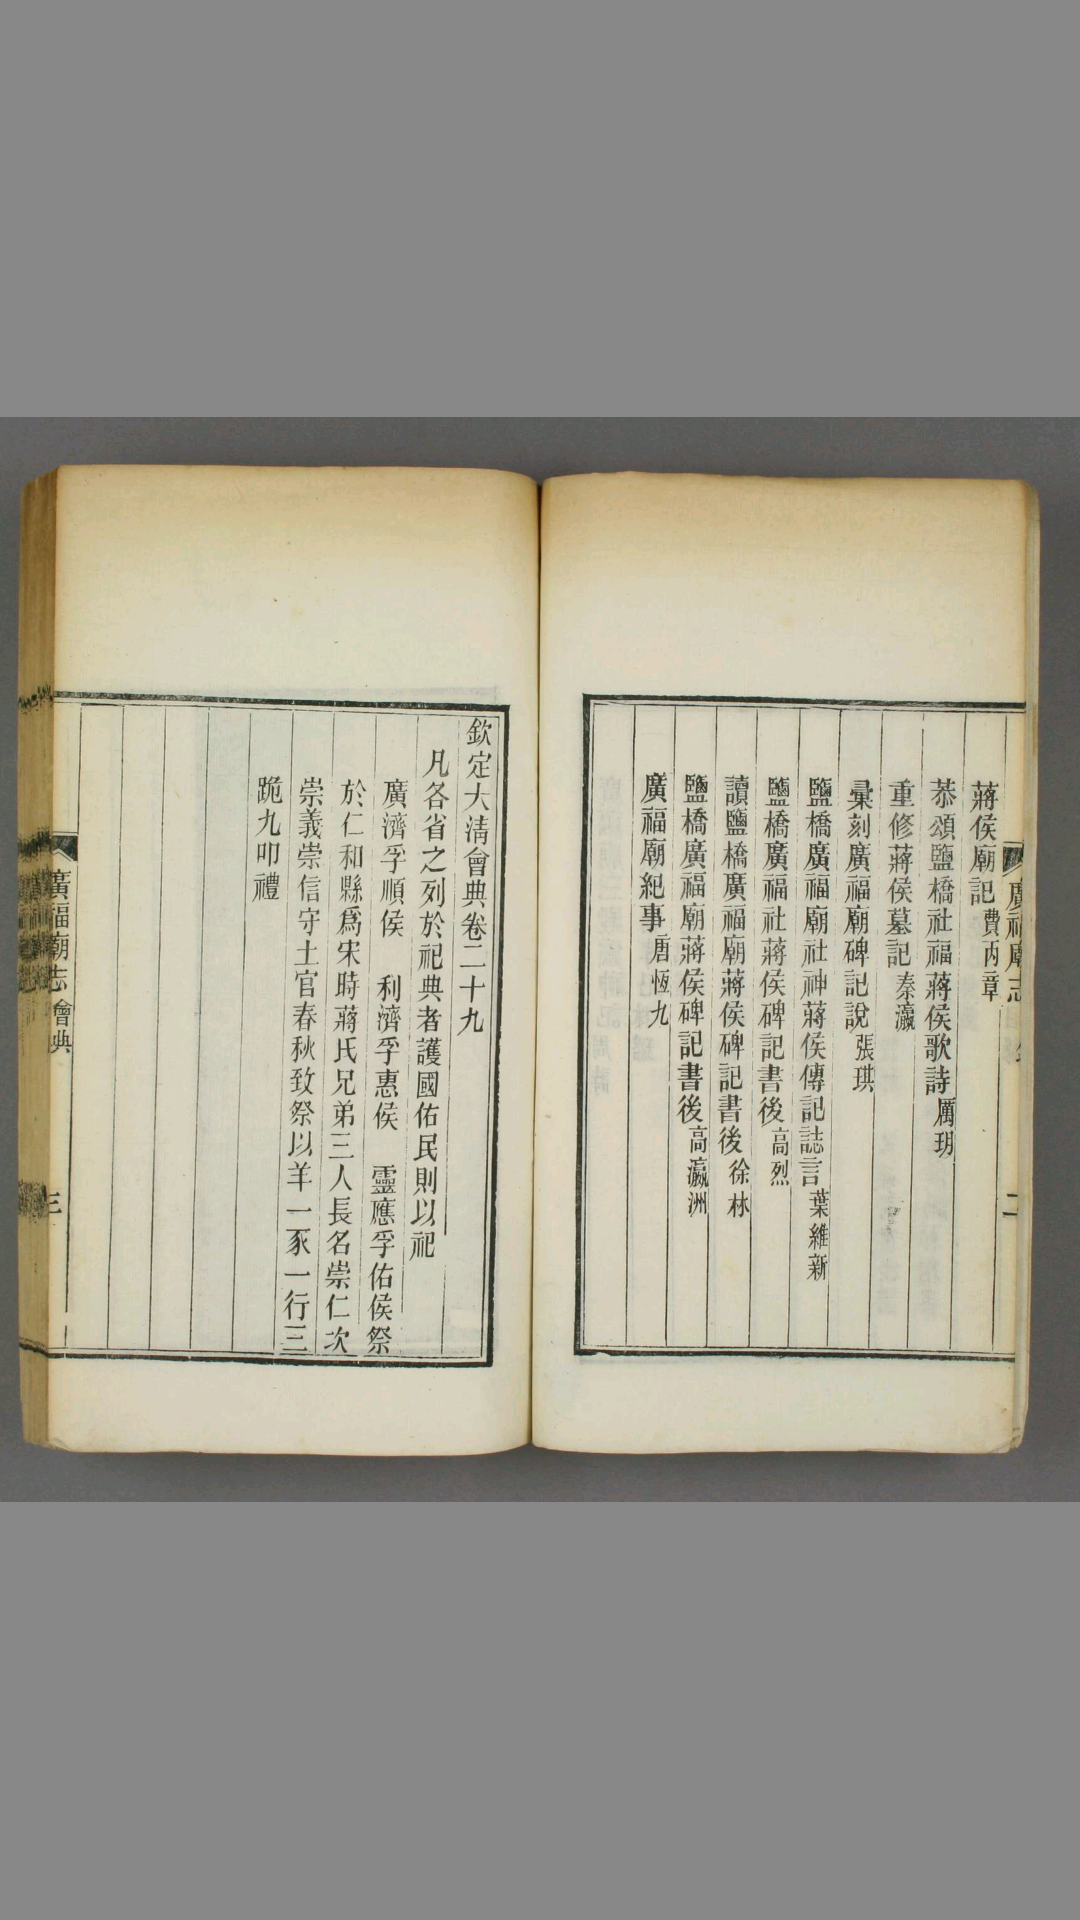 蔣侯廟記費丙章
恭頌鹽橋社福蔣侯歌詩厲玥
重修蔣侯墓記秦瀛
彙刻廣福廟碑記說張琪
鹽橋廣福廟社神蔣侯傳記誌言葉維新
鹽橋廣福社蔣侯碑記書後高烈
讀鹽橋廣福廟蔣侯碑記書後徐林
鹽橋廣福廟蔣侯碑記書後高瀛洲
廣福廟紀事唐恆九
廣福廟志
二
欽定大清會典卷二十九
凡各省之列於祀典者護國佑民則以祀
廣濟孚順侯 利濟孚惠侯 靈應孚佑侯祭
於仁和縣爲宋時蔣氏兄弟三人長名崇仁次
崇義崇信守土官春秋致祭以羊一豕一行三
跪九叩禮
廣福廟志會典
三